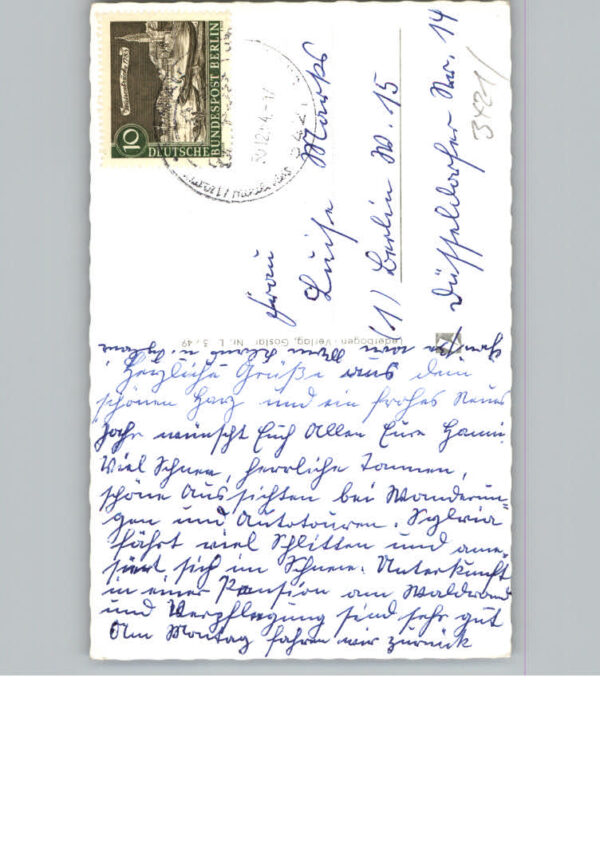 10
DEUTSCHE
BUNDESPOST BERLIN
30.12.
Frau
Luise Marks
(1) Berlin W. 15
Düsseldorfer Str. 14
3421/
Lederbogen-Verlag, Goslar Nr. L 3/49
Herzliche Grüße aus dem
schönen Harz und ein frohes Neues
Jahr wünscht Euch Allen Eure Hanni.
Viel Schnee, herrliche Tannen,
schöne Aussichten bei Wanderun-
gen und Autotouren. Sylvia
fährt viel Schlitten und amü-
siert sich im Schnee. Unterkunft
in einer Pension am Waldrand
und Verpflegung sind sehr gut
Am Montag fahren wir zurück